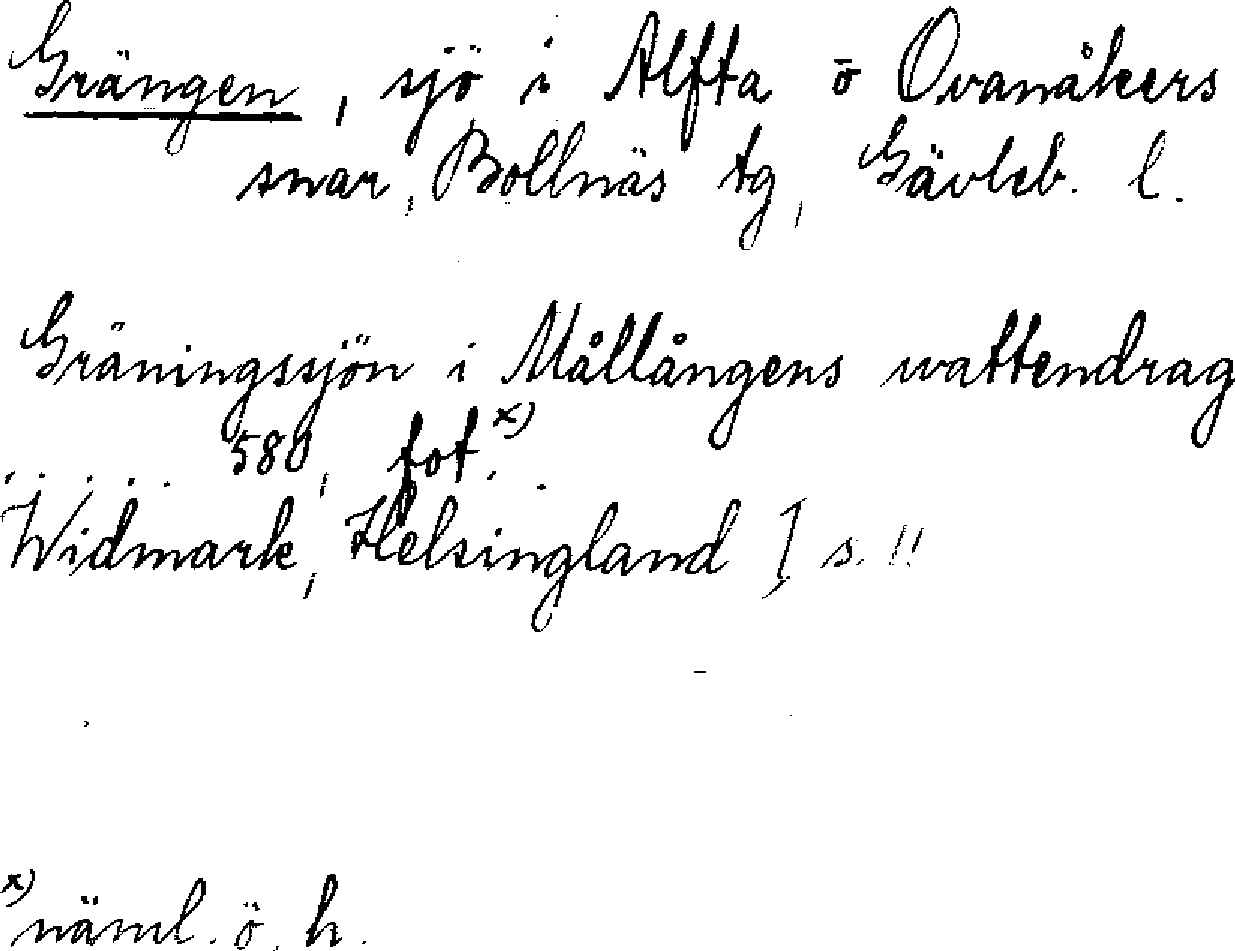 Grängen, sjö i Alfta o Ovanåkers
snar, Bollnäs tg, Gävleb. l.
Gräningssjön i Mållångens wattendrag
. . . . . 580, fot.x) .
Widmark, Helsingland I, s. 11
x) näml. ö. h.